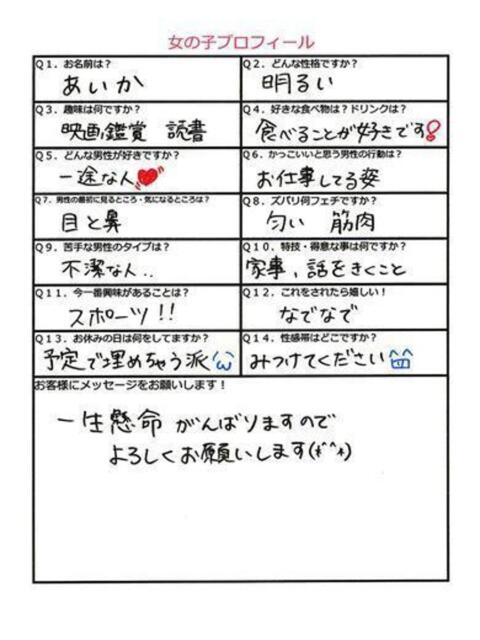 女の子プロフィール
Q1．お名前は？
あいか
Q2．どんな性格ですか？
明るい
Q3．趣味は何ですか？
映画鑑賞　読書
Q4．好きな食べ物は？ドリンクは？
食べることが好きです!
Q5．どんな男性が好きですか？
一途な人♥
Q6．かっこいいと思う男性の行動は？
お仕事してる姿
Q7．男性の最初に見るところ・気になるところは？
目と鼻
Q8．ズバリ何フェチですか？
匂い　筋肉
Q9．苦手な男性のタイプは？
不潔な人..
Q10．特技・得意な事は何ですか？
家事、話をきくこと
Q11．今一番興味があることは？
スポーツ!!
Q12．これをされたら嬉しい！
なでなで
Q13．お休みの日は何をしてますか？
予定で埋めちゃう派
Q14．性感帯はどこですか？
みつけてください
お客様にメッセージをお願いします！
一生懸命 がんばりますので
よろしくお願いします(*^^*)